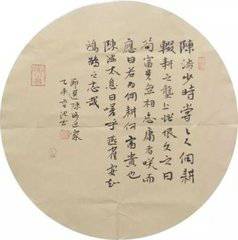 陳涉少時嘗与人佣耕
輟耕之壟上悵恨久之曰
苟富貴無相忘庸者咲而
應曰若為佣耕何富貴也
陳涉太息曰嗟乎燕雀安知
鴻鵠之志哉
節選陳涉世家
乙未